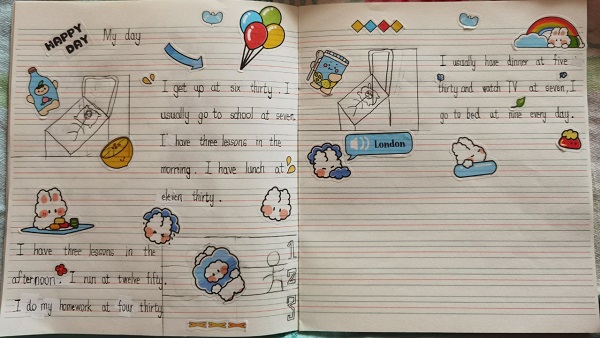 HAPPY
DAY
My day
I get up at six thirty. I
usually go to school at seven.
I have three lessons in the
morning. I have lunch at
eleven thirty.
I have three lessons in the
afternoon. I run at twelve fifty.
I do my homework at four thirty
1
2
3
I usually have dinner at five
thirty and watch TV at seven. I
go to bed at nine every day.
London